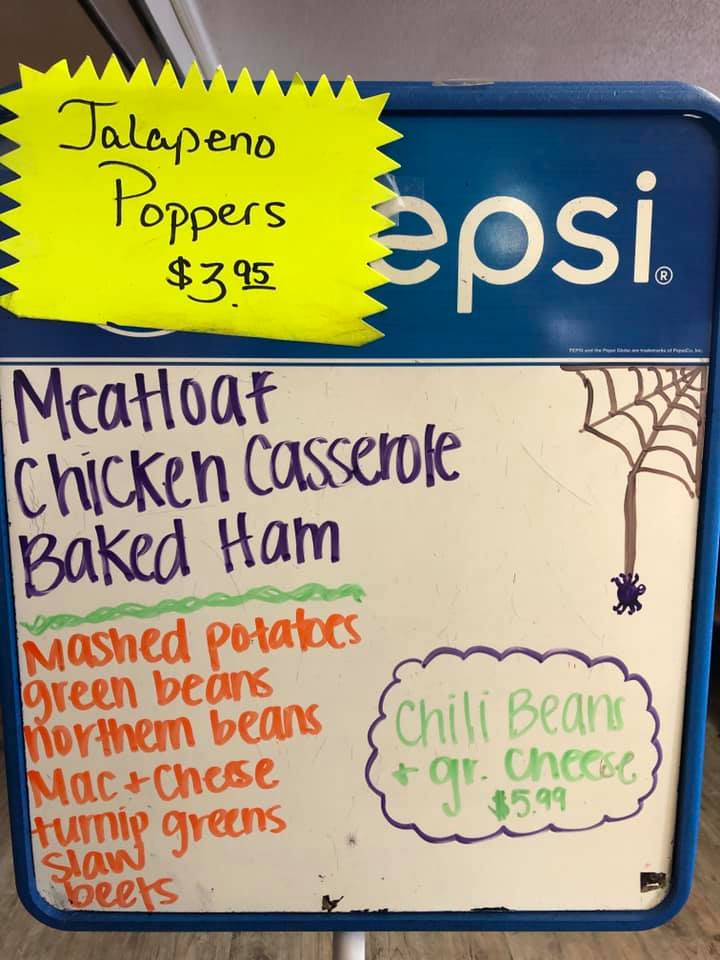 Jalapeno
Poppers
$3.95
epsi®
PEPSI and the Pepsi Globe are trademarks of PepsiCo, Inc.
Meatloaf
Chicken Casserole
Baked Ham
Mashed potatoes
green beans
northern beans
Mac + Cheese
turnip greens
slaw
beets
Chili Beans
+ gr. cheese
$5.99